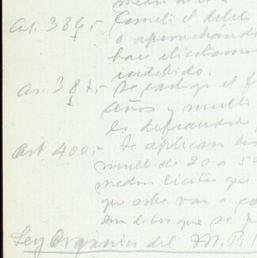 Art. 386,-
Cometi el delito
o aprovechándo
hace ilícitamen
indebido.
Art. 387,- Se castiga el f
años y multa
lo defraudado,
Art 400,- Se aplican las
mult de 20 a 50
medios lícitos que
que sobre van a co
son de los que se p
Ley Organica del M.P.